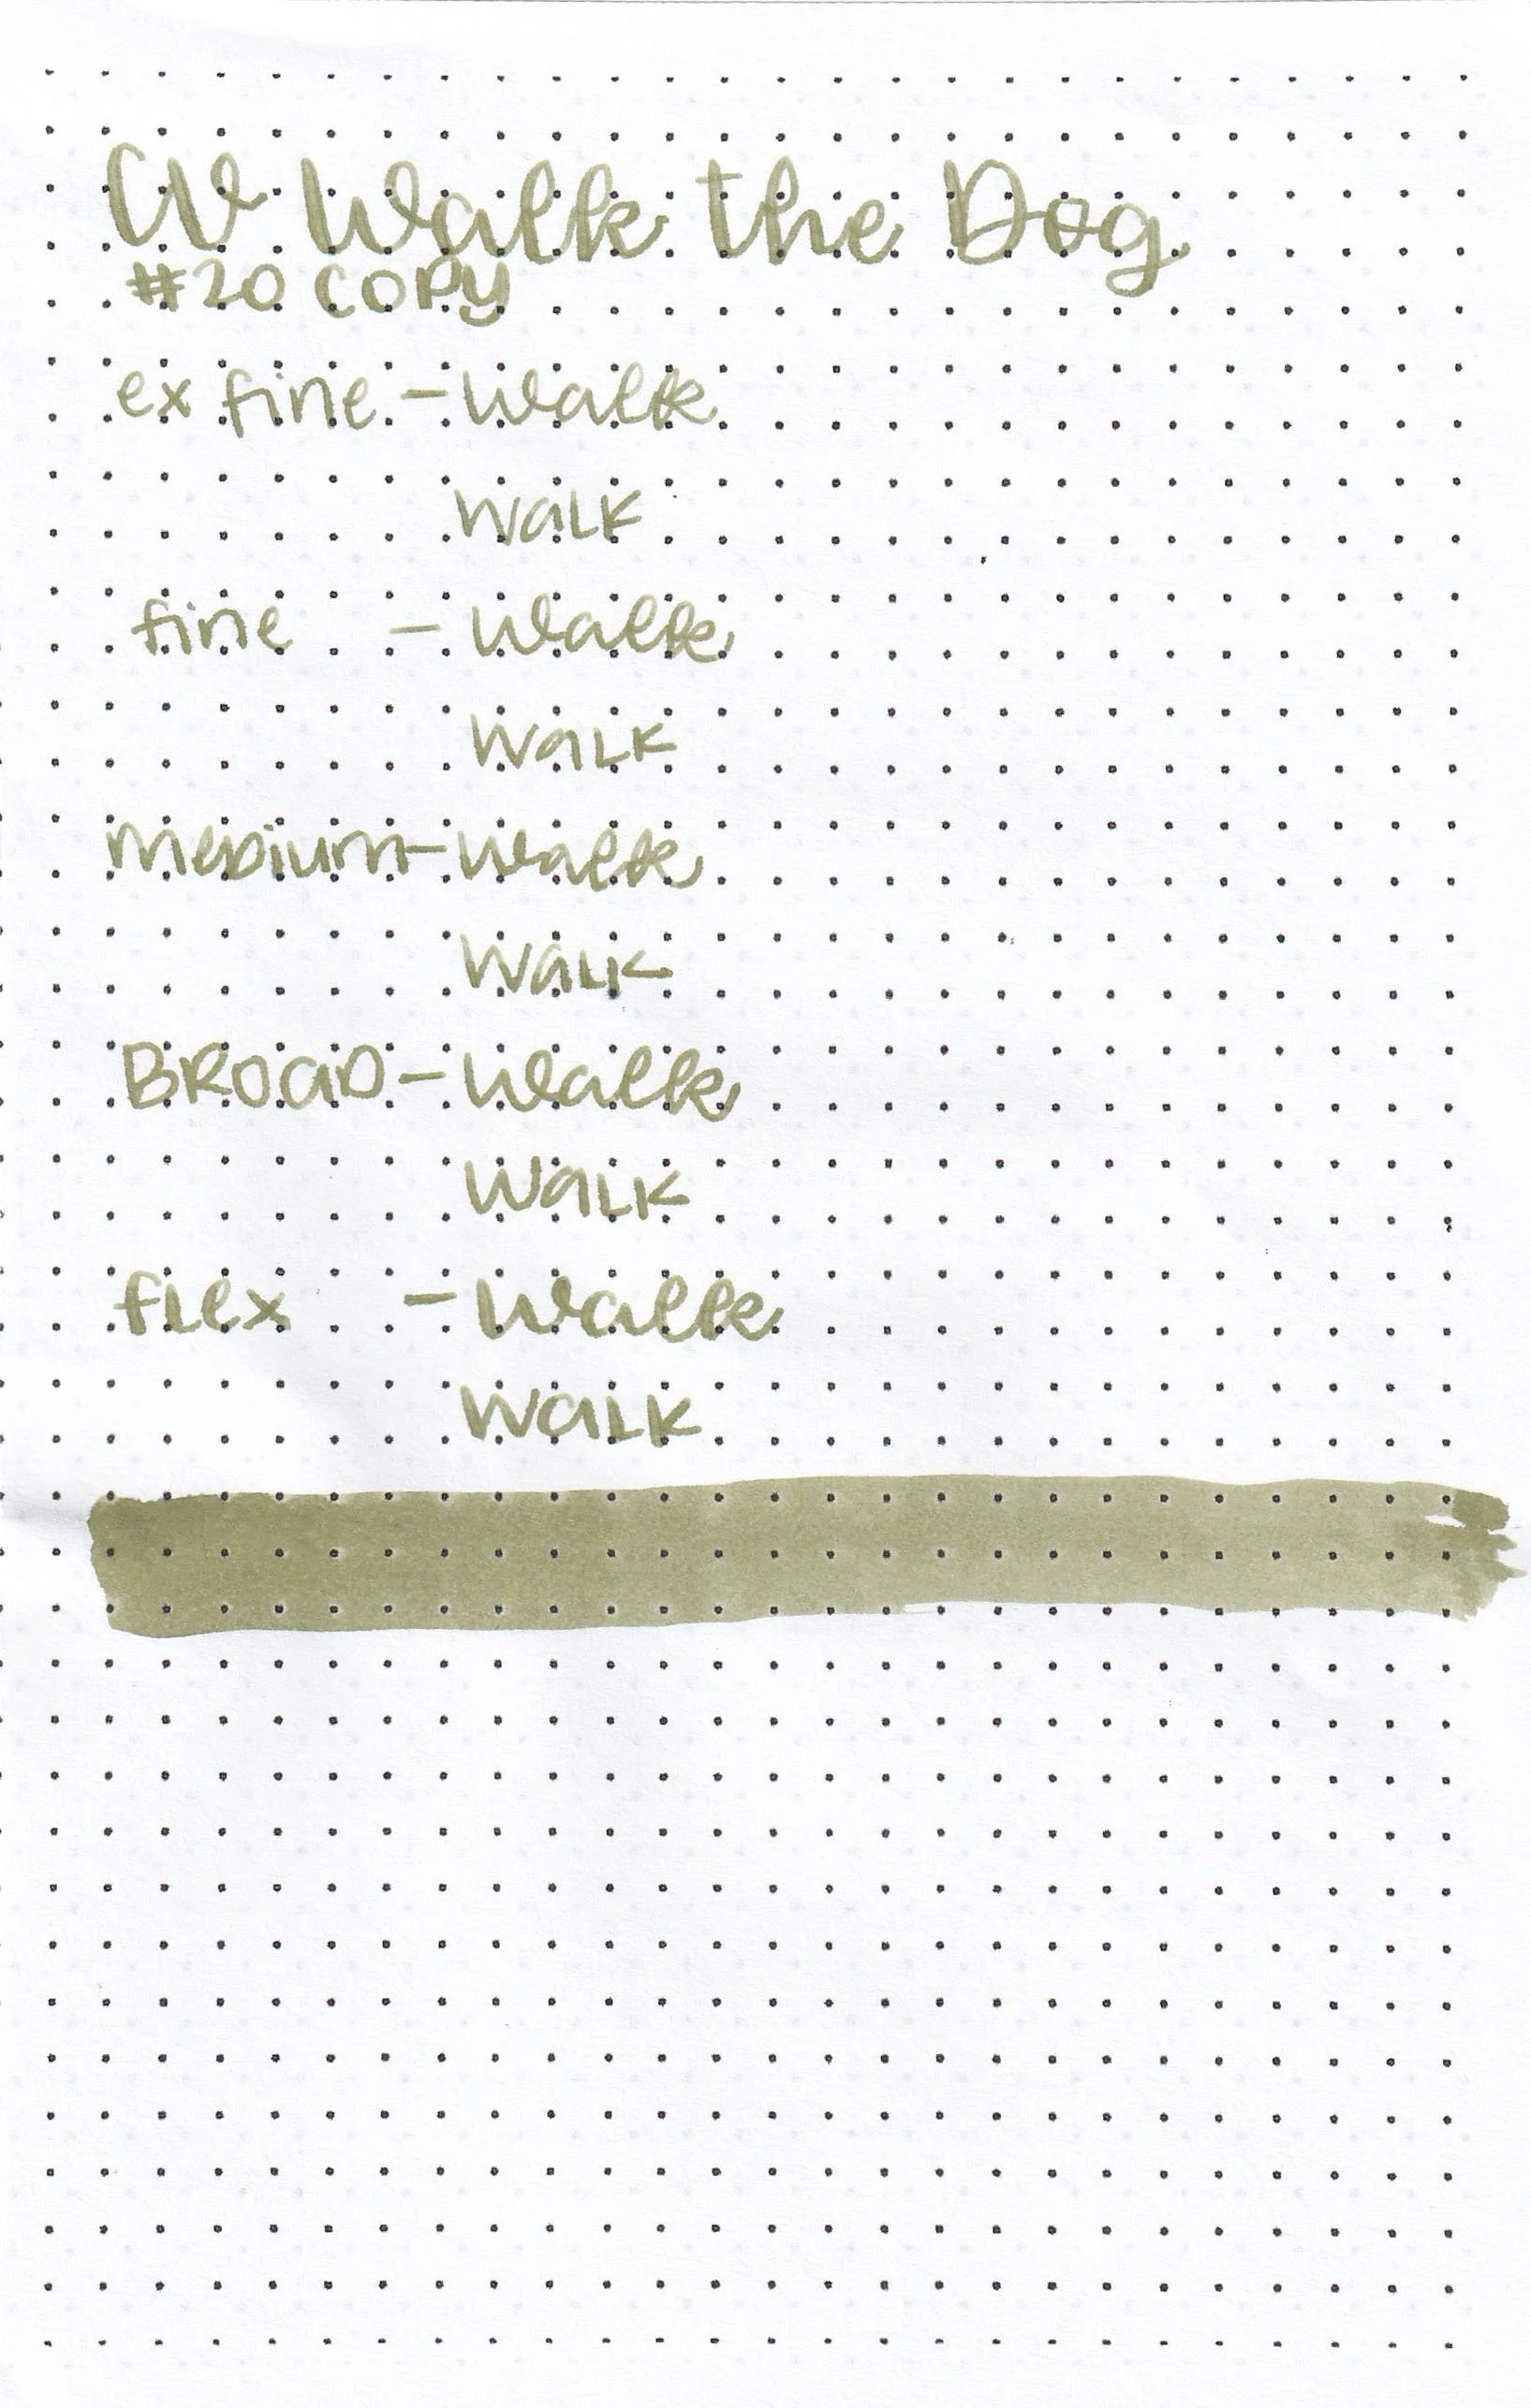 CV Walk the Dog
#20 COPY
ex fine - Walk
WaLK
fine - Walk
WaLK
meDium - Walk
WaLK
BROaD - Walk
WaLK
fLex - Walk
WaLK